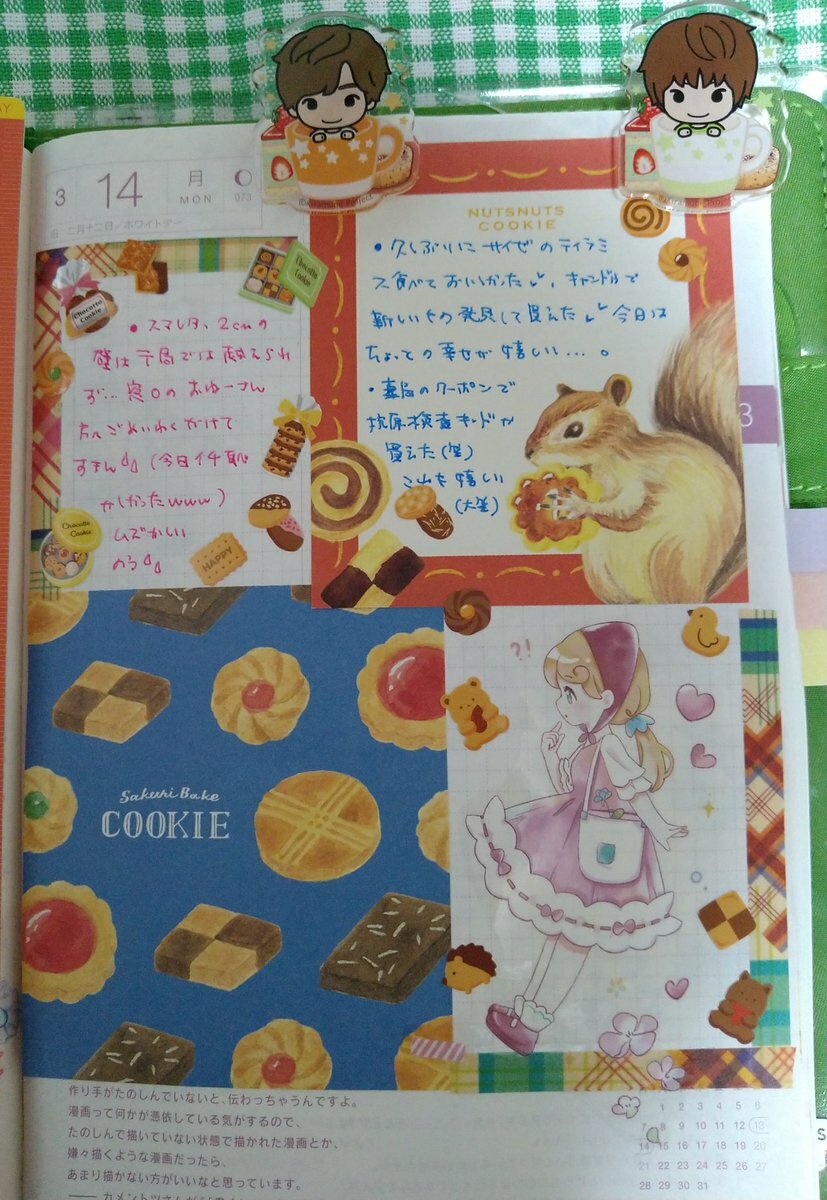 3 14 月 MON 073
旧二月十二日/ホワイトデー
NUTSNUTS
COOKIE
Chocotto
Cookie
Chocotto
Cookie
• 久しぶりに サイゼのティラミ
ス食べて おいしかった、キャンドゥで
新しいもの発見して 買えた 今日は
ちょっとの幸せが 嬉しい…。
• 薬局のクーポンで
抗原検査キットが
買えた(笑)
これも嬉しい
(大笑)
• スマレタ、2cmの
壁は 予局では 越えられ
ず…窓口のおゆーさん
ごめいわくかけて
すまん
(今日イチ恥
かしかったwww)
ムズかしい
のう
Chocotto
Cookie
HAPPY
?!
Sakuri Bake
COOKIE
作り手がたのしんでいないと、伝わっちゃうんですよ。
漫画って何かが憑依している気がするので、
たのしんで描いていない状態で描かれた漫画とか、
嫌々描くような漫画だったら、
あまり描かない方がいいなと思っています。
1 2 3 4 5 6
7 8 9 10 11 12 13
14 15 16 17 18 19 20
21 22 23 24 25 26 27
28 29 30 31